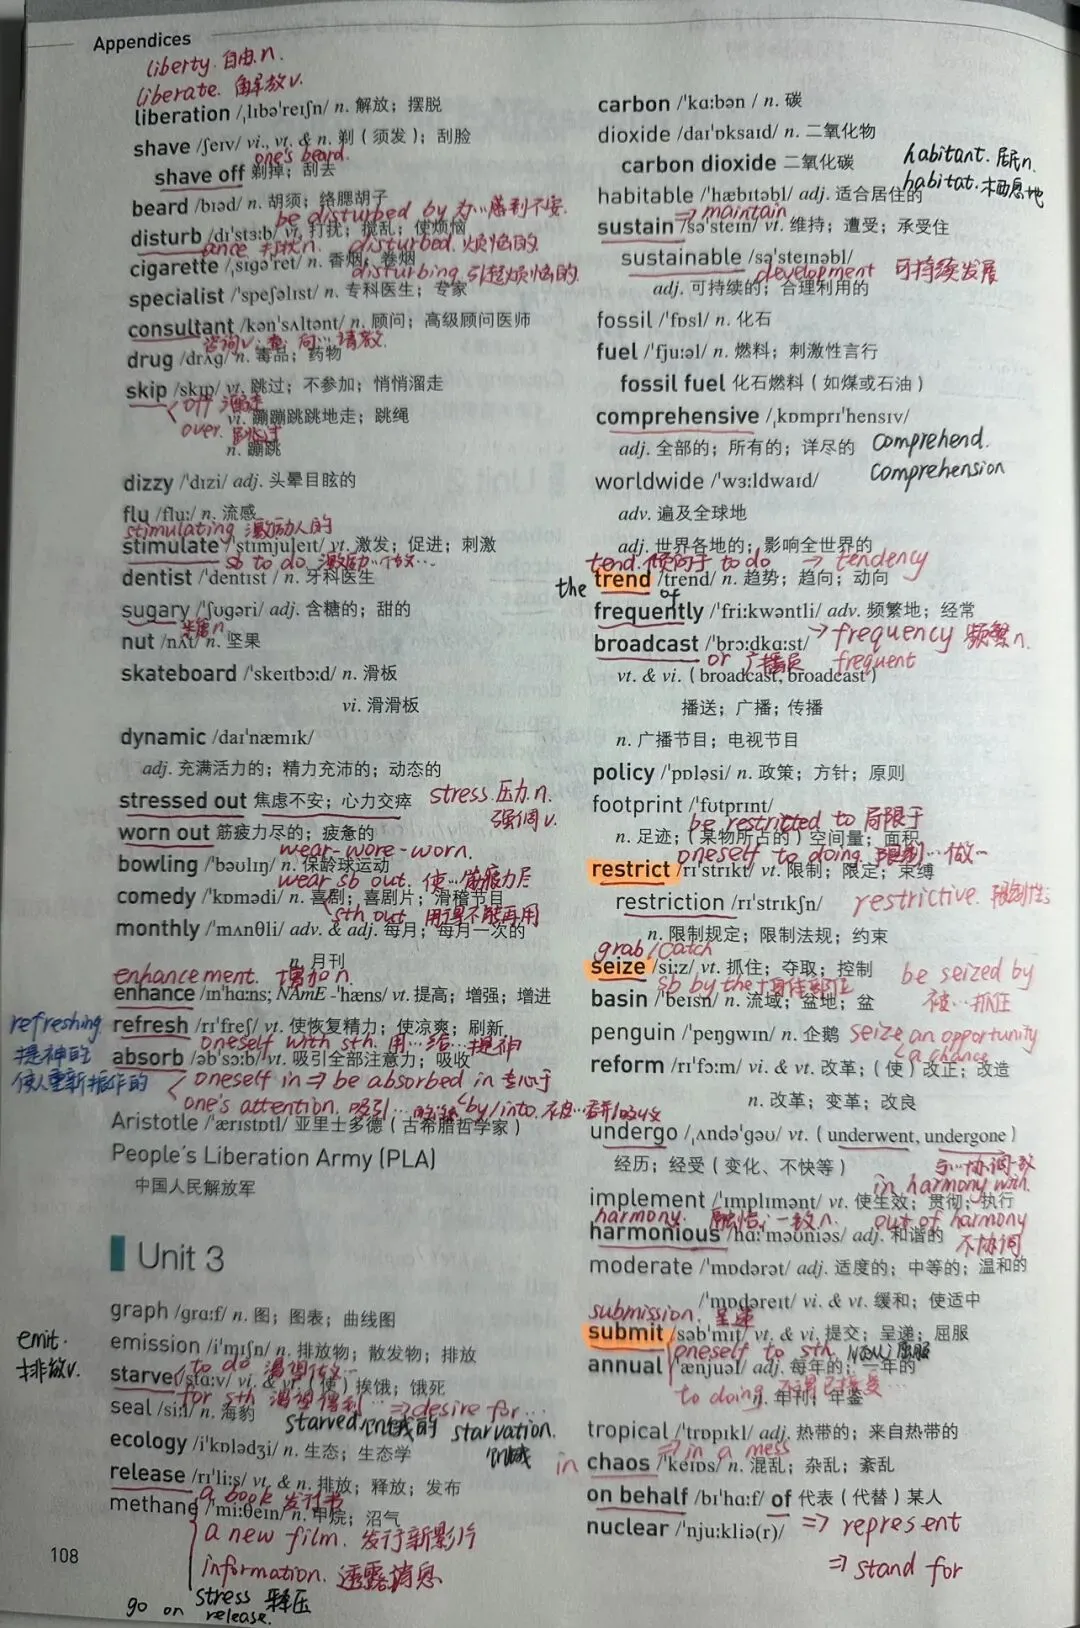 Appendices
liberty. 自由.n.
liberate. 解放v.
liberation /ˌlɪbəˈreɪʃn/ n. 解放；摆脱
shave /ʃeɪv/ vi., vt. & n. 剃（须发）；刮脸
one's beard.
shave off 剃掉；刮去
beard /bɪəd/ n. 胡须；络腮胡子
be disturbed by 为…感到不安.
disturb /dɪˈstɜːb/ vt. 打扰；搅乱；使烦恼
ance 打扰n. disturbed. 烦恼的
cigarette /ˌsɪɡəˈret/ n. 香烟；卷烟
disturbing. 引起烦恼的.
specialist /ˈspeʃəlɪst/ n. 专科医生；专家
consultant /kənˈsʌltənt/ n. 顾问；高级顾问医师
drug /drʌɡ/ n. 毒品；药物
skip /skɪp/ vt. 跳过；不参加；悄悄溜走
off 溜走
vi. 蹦蹦跳跳地走；跳绳
over. 跳过
n. 蹦跳
dizzy /ˈdɪzi/ adj. 头晕目眩的
flu /fluː/ n. 流感
stimulating 激励人的
stimulate /ˈstɪmjuleɪt/ vt. 激发；促进；刺激
sb to do 激励…做…
dentist /ˈdentɪst / n. 牙科医生
sugary /ˈʃʊɡəri/ adj. 含糖的；甜的
nut /nʌt/ n. 坚果
skateboard /ˈskeɪtbɔːd/ n. 滑板
vi. 滑滑板
dynamic /daɪˈnæmɪk/
adj. 充满活力的；精力充沛的；动态的
stressed out 焦虑不安；心力交瘁
stress. 压力.n.
强调v.
worn out 筋疲力尽的；疲惫的
wear-wore-worn.
bowling /ˈbəʊlɪŋ/ n. 保龄球运动
wear sb out. 使…筋疲力尽
comedy /ˈkɒmədi/ n. 喜剧；喜剧片；滑稽节目
sth out 用得不能再用
monthly /ˈmʌnθli/ adv. & adj. 每月；每月一次的
n. 月刊
enhancement. 增加n.
enhance /ɪnˈhɑːns; NAmE -ˈhæns/ vt. 提高；增强；增进
refreshing
提神的
使人重新振作的
refresh /rɪˈfreʃ/ vt. 使恢复精力；使凉爽；刷新
oneself with sth. 用…给…提神
absorb /əbˈsɔːb/ vt. 吸引全部注意力；吸收
oneself in ⇒ be absorbed in 专心于
one's attention. 吸引… by/into. 被…吸收
Aristotle /ˈærɪstɒtl/ 亚里士多德（古希腊哲学家）
People's Liberation Army (PLA)
中国人民解放军
Unit 3
graph /ɡrɑːf/ n. 图；图表；曲线图
emit.
排放v.
emission /iˈmɪʃn/ n. 排放物；散发物；排放
to do 渴望做…
starve /stɑːv/ vi. & vt.（使）挨饿；饿死
for sth 渴望得到… ⇒ desire for…
seal /siːl/ n. 海豹
starved.饥饿的 starvation.
饥饿
ecology /iˈkɒlədʒi/ n. 生态；生态学
release /rɪˈliːs/ vt. & n. 排放；释放；发布
a book 发行书
methane /ˈmiːθeɪn/ n. 甲烷；沼气
a new film. 发行新影片
information. 透露消息
stress 释压
go on release.
108
carbon /ˈkɑːbən / n. 碳
dioxide /daɪˈɒksaɪd/ n. 二氧化物
carbon dioxide 二氧化碳
habitant. 居民n.
habitat. 栖息地
habitable /ˈhæbɪtəbl/ adj. 适合居住的
⇒ maintain
sustain /səˈsteɪn/ vt. 维持；遭受；承受住
sustainable /səˈsteɪnəbl/
development 可持续发展
adj. 可持续的；合理利用的
fossil /ˈfɒsl/ n. 化石
fuel /ˈfjuːəl/ n. 燃料；刺激性言行
fossil fuel 化石燃料（如煤或石油）
comprehensive /ˌkɒmprɪˈhensɪv/
adj. 全部的；所有的；详尽的
comprehend.
comprehension
worldwide /ˈwɜːldwaɪd/
adv. 遍及全球地
adj. 世界各地的；影响全世界的
tend. 倾向于 to do → tendency
the trend /trend/ n. 趋势；趋向；动向
of
frequently /ˈfriːkwəntli/ adv. 频繁地；经常
→ frequency 频繁n.
broadcast /ˈbrɔːdkɑːst/
or 广播员 frequent
vt. & vi.（broadcast, broadcast）
播送；广播；传播
n. 广播节目；电视节目
policy /ˈpɒləsi/ n. 政策；方针；原则
footprint /ˈfʊtprɪnt/
be restricted to 局限于
n. 足迹；（某物所占的）空间量；面积
oneself to doing. 限制…做…
restrict /rɪˈstrɪkt/ vt. 限制；限定；束缚
restriction /rɪˈstrɪkʃn/
restrictive.
n. 限制规定；限制法规；约束
grab/catch
seize /siːz/ vt. 抓住；夺取；控制
sb by the+身体部位
be seized by
被…抓住
basin /ˈbeɪsn/ n. 流域；盆地；盆
penguin /ˈpeŋɡwɪn/ n. 企鹅
seize an opportunity
a chance
reform /rɪˈfɔːm/ vi. & vt. 改革；（使）改正；改造
n. 改革；变革；改良
undergo /ˌʌndəˈɡəʊ/ vt.（underwent, undergone）
经历；经受（变化、不快等）
与…协调一致
in harmony with.
implement /ˈɪmplɪmənt/ vt. 使生效；贯彻；执行
harmony. 融洽；一致n. out of harmony
不协调
harmonious /hɑːˈməʊniəs/ adj. 和谐的
moderate /ˈmɒdərət/ adj. 适度的；中等的；温和的
/ˈmɒdəreɪt/ vi. & vt. 缓和；使适中
submission. 呈递
submit /səbˈmɪt/ vt. & vi. 提交；呈递；屈服
oneself to sth.
annual /ˈænjuəl/ adj. 每年的；一年的
to doing.
n. 年刊；年鉴
tropical /ˈtrɒpɪkl/ adj. 热带的；来自热带的
⇒ in a mess
in chaos /ˈkeɪɒs/ n. 混乱；杂乱；紊乱
on behalf /bɪˈhɑːf/ of 代表（代替）某人
nuclear /ˈnjuːkliə(r)/
⇒ represent
⇒ stand for